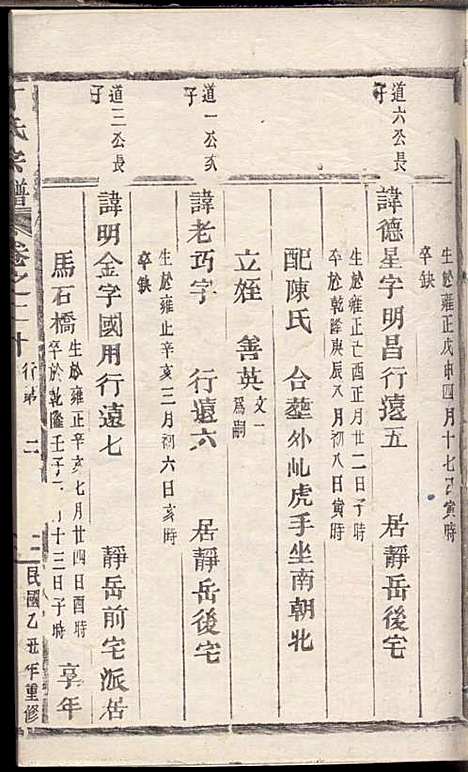 生於雍正戊申四月十七日寅時
卒缺
道六公長子
諱德星字明昌行遠五 居靜岳後宅
生於雍正己酉正月廿二日子時
卒於乾隆庚辰八月初八日寅時
配陳氏 合塟外乢虎手坐南朝北
立姪 善英文一為嗣
道一公亥子
諱老巧字 行遠六 居靜岳後宅
生於雍正辛亥三月初六日亥時
卒缺
道三公長子
諱明金字國用行遠七 靜岳前宅派居
馬石橋 生於雍正辛亥七月廿四日酉時
卒於乾隆壬子 月十三日子時 享年
丁氏宗譜 卷之二十 行弟 二 民國乙丑年重修